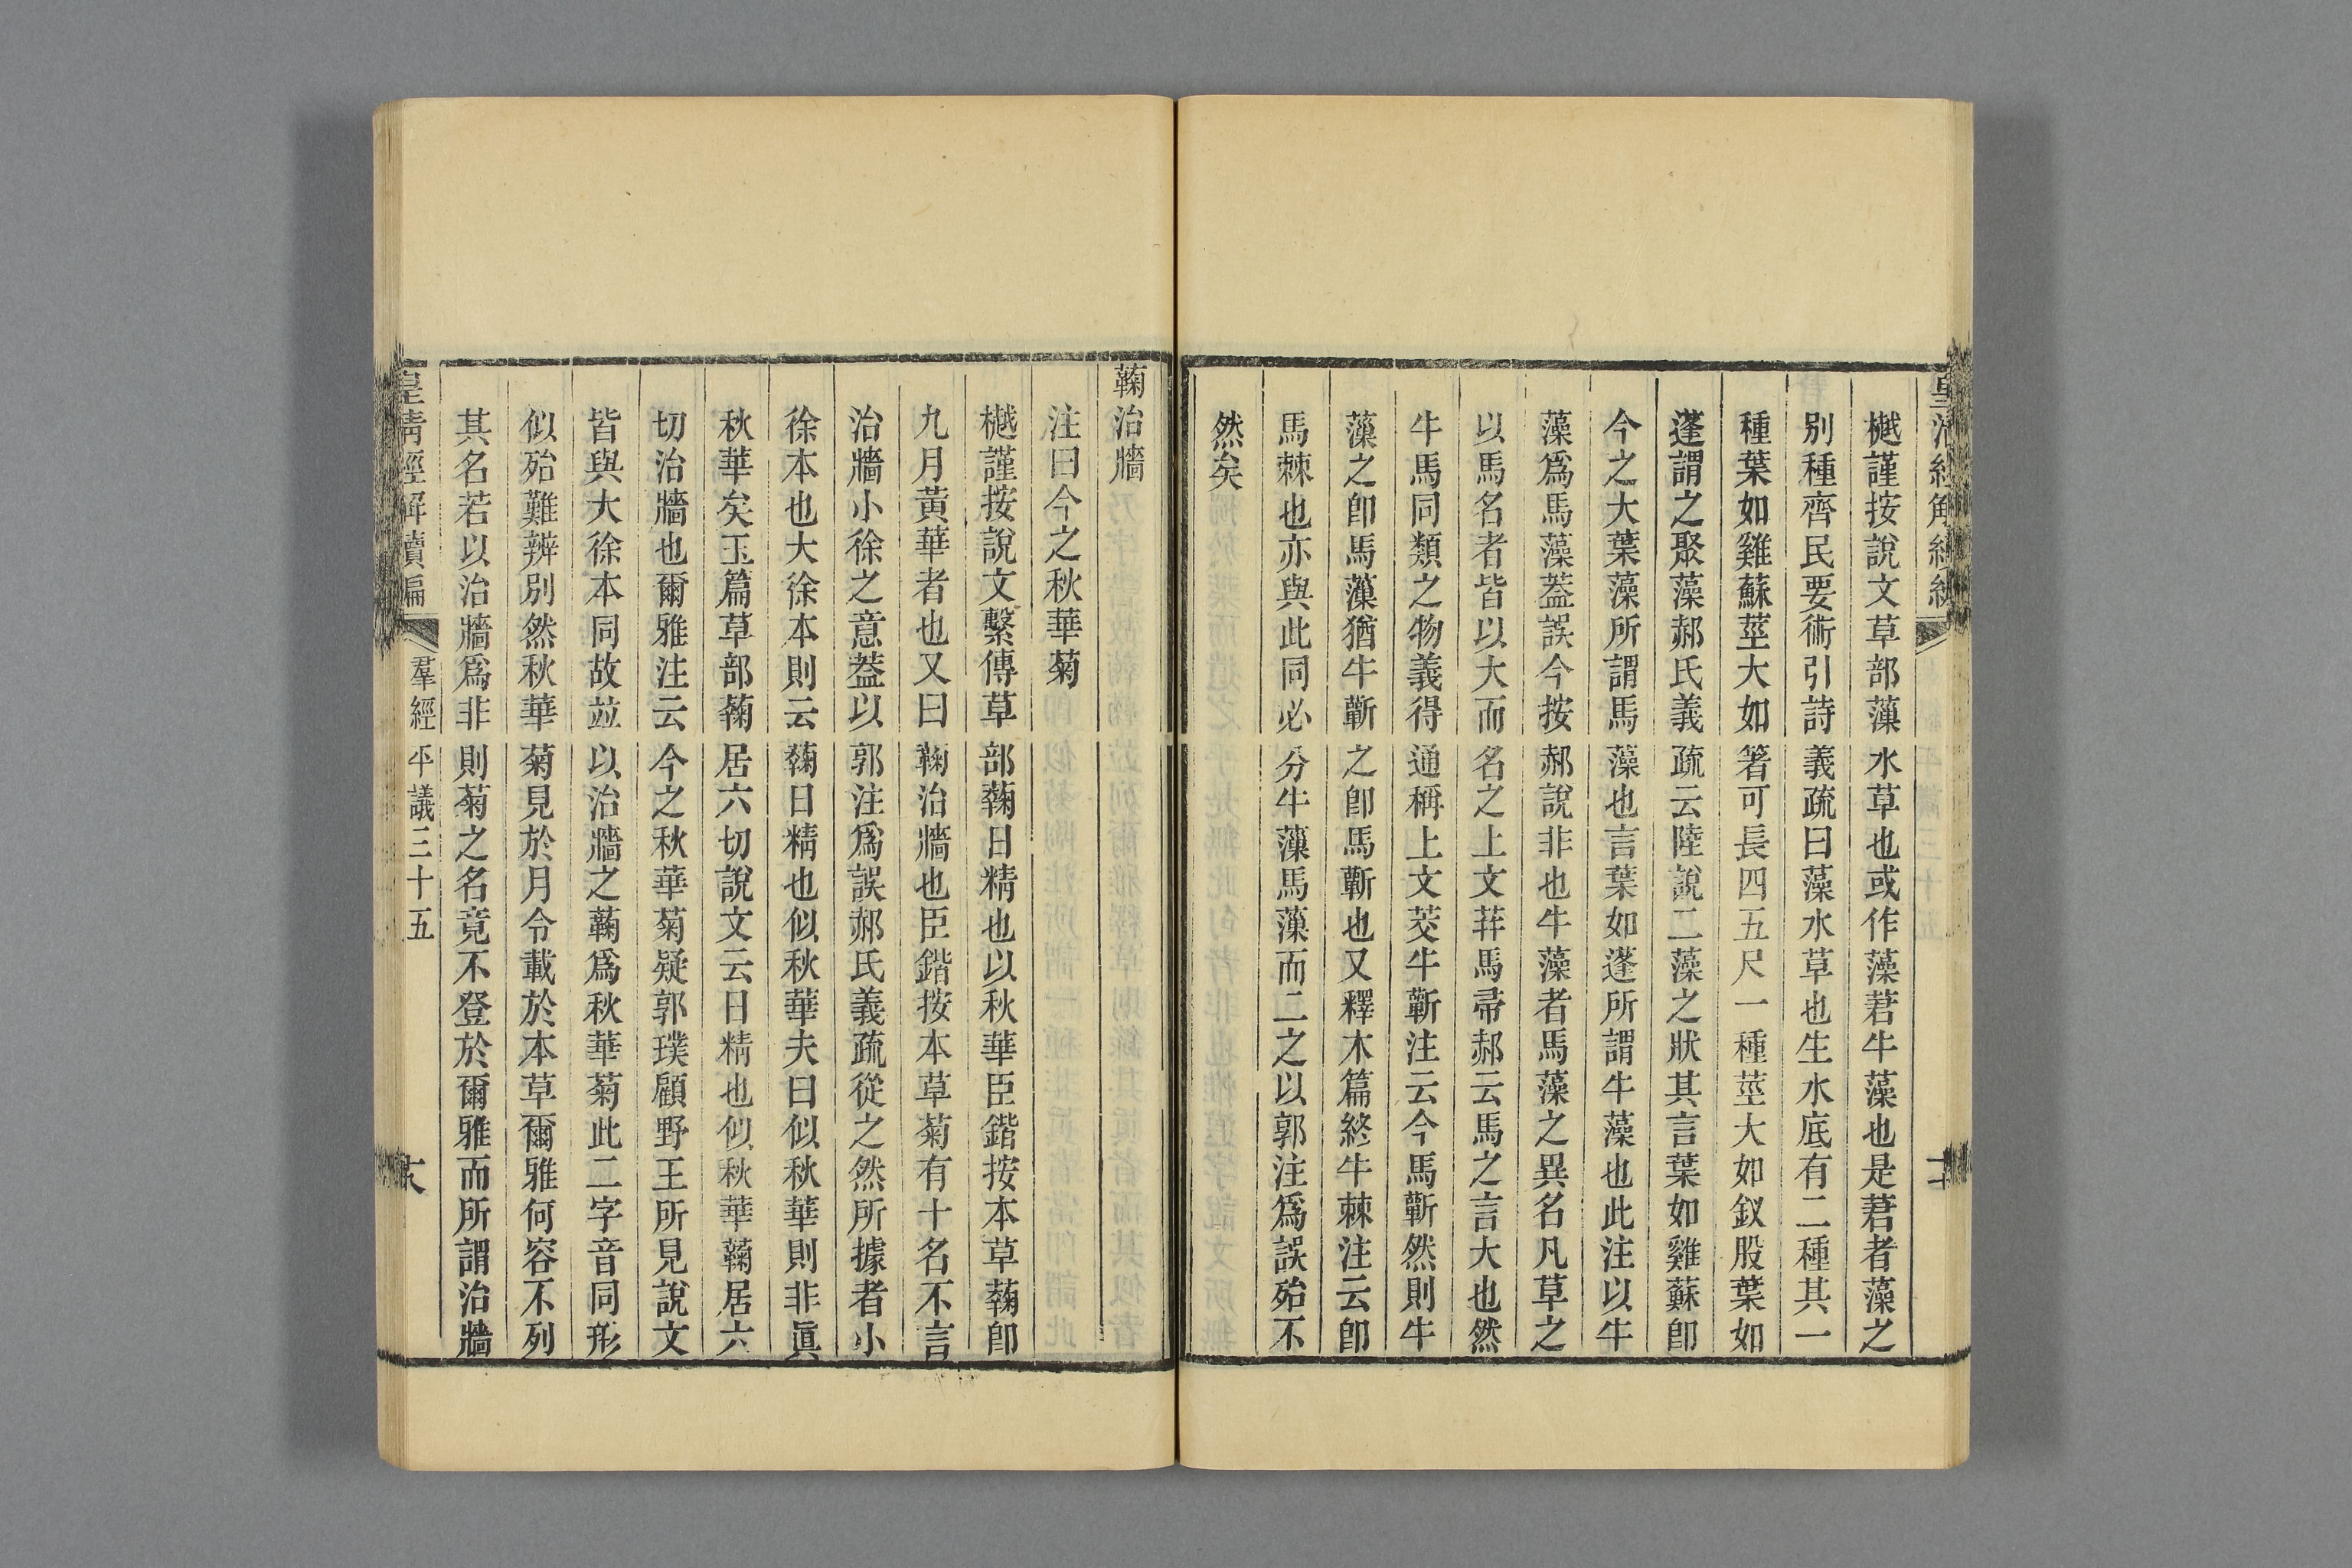 樾謹按說文草部薻水草也或作藻莙牛藻也是莙者藻之
別種齊民要術引詩義疏曰藻水草也生水底有二種其一
種葉如雞蘇莖大如箸可長四五尺一種莖大如釵股葉如
蓬謂之聚藻郝氏義疏云陸說二藻之狀其言葉如雞蘇卽
今之大葉藻所謂馬藻也言葉如蓬所謂牛藻也此注以牛
藻爲馬藻葢誤今按郝說非也牛藻者馬藻之異名凡草之
以馬名者皆以大而名之上文荓馬帚郝云馬之言大也然
牛馬同類之物義得通稱上文茭牛蘄注云今馬蘄然則牛
薻之卽馬薻猶牛蘄之卽馬蘄也又釋木篇終牛棘注云卽
馬棘也亦與此同必分牛薻馬薻而二之以郭注爲誤殆不
然矣
蘜治牆
注曰今之秋華菊
樾謹按說文繫傳草部蘜日精也以秋華臣鍇按本草蘜卽
九月黃華者也又曰蘜治牆也臣鍇按本草菊有十名不言
治牆小徐之意葢以郭注爲誤郝氏義疏從之然所據者小
徐本也大徐本則云蘜日精也似秋華夫曰似秋華則非眞
秋華矣玉篇草部蘜居六切說文云日精也似秋華蘜居六
切治牆也爾雅注云今之秋華菊疑郭璞顧野王所見說文
皆與大徐本同故竝以治牆之蘜爲秋華菊此二字音同形
似殆難辨別然秋華菊見於月令載於本草爾雅何容不列
其名若以治牆爲非則菊之名竟不登於爾雅而所謂治牆
皇清經解續編 羣經平議三十五